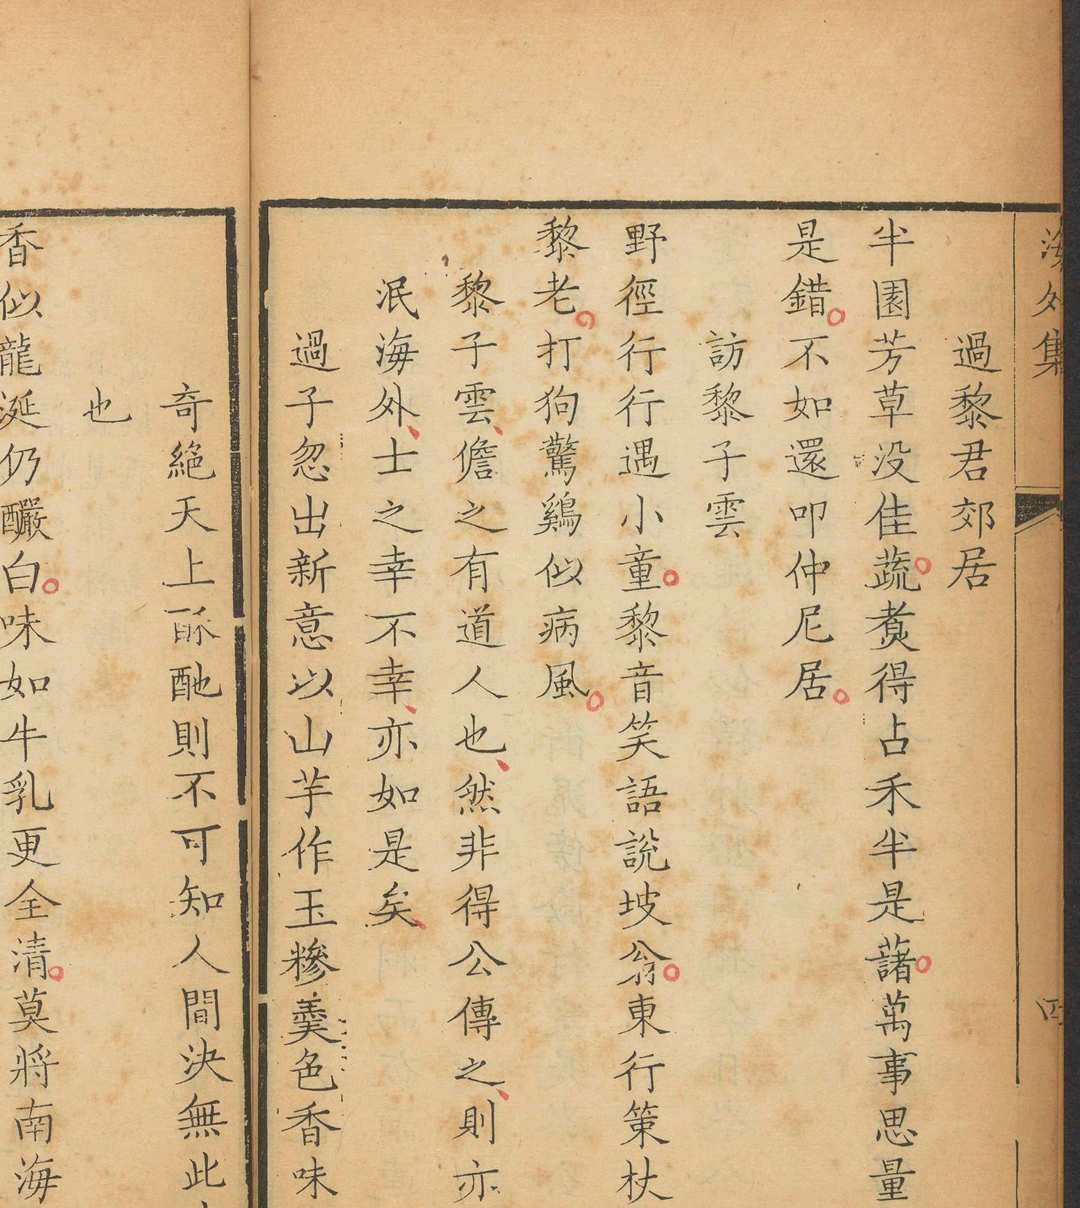 海外集
四
過黎君郊居
半園芳草没佳蔬煑得占禾半是藷萬事思量
是錯不如還叩仲尼居
訪黎子雲
野徑行行遇小童黎音笑語說坡翁東行策杖
黎老打狗驚鷄似病風
黎子雲儋之有道人也然非得公傳之則亦
泯海外士之幸不幸亦如是矣
過子忽出新意以山芋作玉糝羹色香味
奇絕天上酥酏則不可知人間決無此
也
香似龍涎仍釅白味如牛乳更全清莫將南海